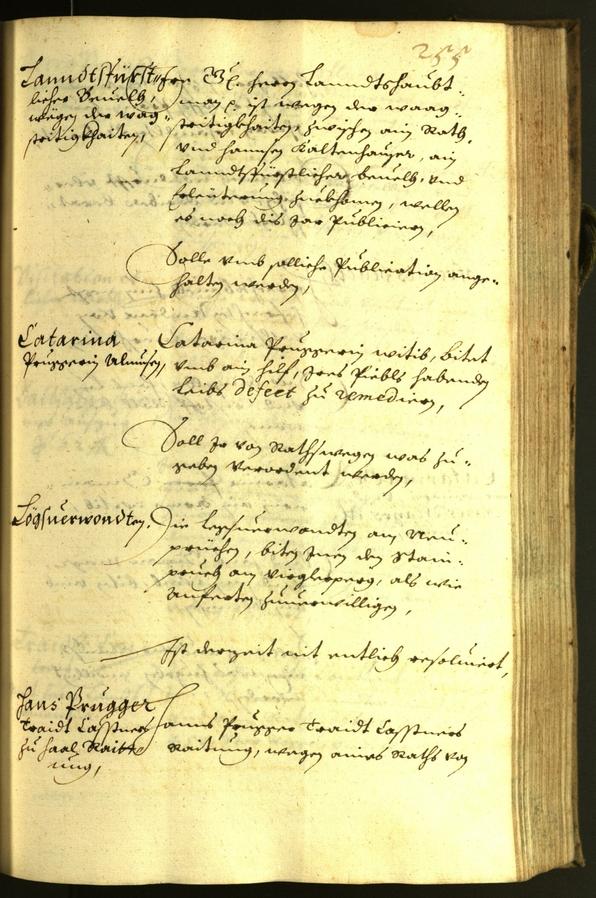 255
Lanndtsfürst-
licher Beuelh,
wegen der wag-
stritigkhaiten,
Herrn Lanndtshaubt-
man ist wegen der waag-
stritigkhaiten, zwischen ain Rath,
vnd Hannsen Kaltenhauser, ain
Lanndtsfürstlicher beuelh, vnd
Erleüterung zuekhomen, wellen
es noch dis Jar Publiciern,
Solle vmb solliche Publication ange-
halten werden,
Catarina
Pruggerin Almusen,
Catarina Pruggerin witib, bitet
vmb ain hilf, Ires habenden
leibs defect zu remediern,
Soll Ir von Rathswegen was zu-
geben verordent werden,
Löhsuerwondten.
Die lechsuerwandten am Neu-
prüchen, biten Inen den Stain-
pruch am, als wie
anferten zuuerwilligen,
Ist derzeit nit entlich resoluiert,
Hans Prugger
Traidt Casstners
zu haal Raitt-
ung,
Hanns Prugger Traidt Casstners
Raitung, wegen aines Raths von